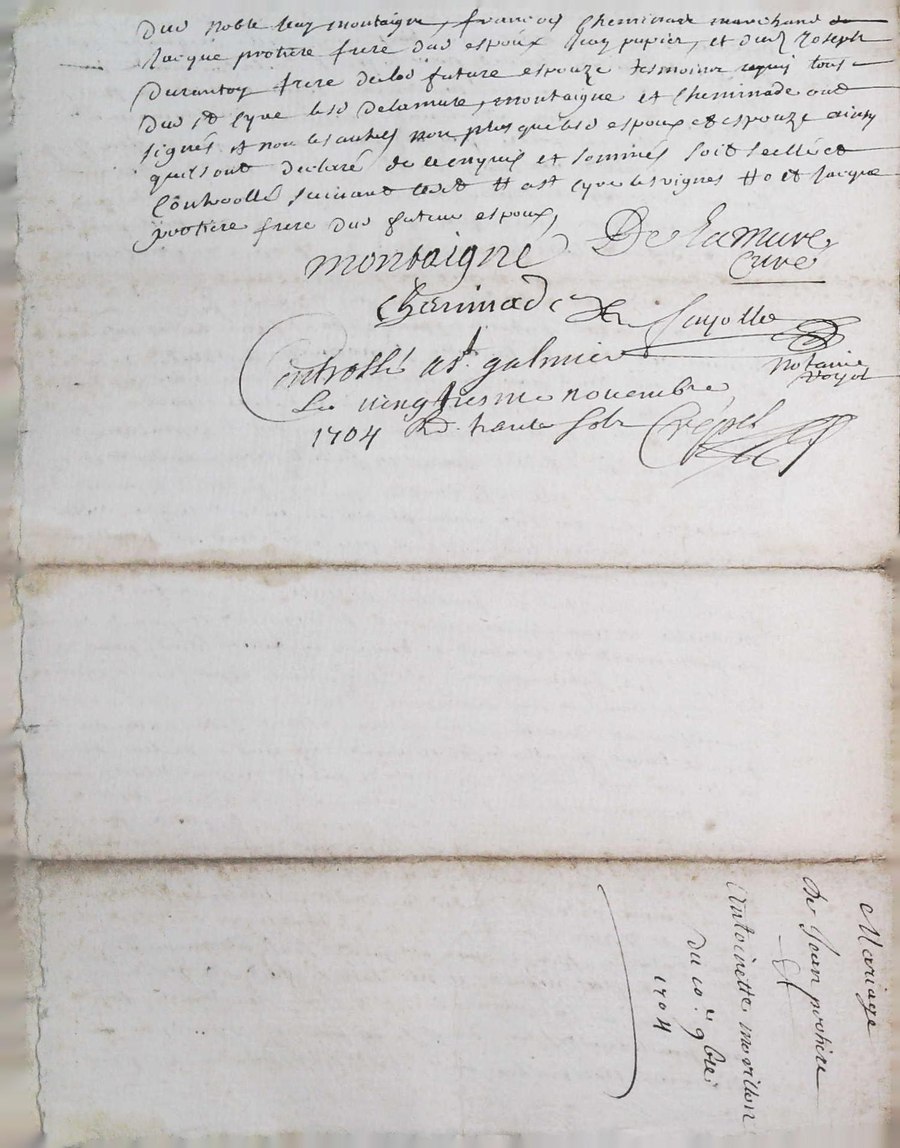 dud noble Jean montaigne, françois Cheminade marchand
Jacque protiere frere dud espoux Jean papier, et dud Joseph
Durantoy frere de lad future espouze tesmoins requis tous
Dud st Cyre lesd Delamure, montaigne et Cheminade ont
signés et non les autres non plus que lesd espoux et espouze ainsy
quils ont declaré de ce enquis et sommés soit scellé et
Controllé suivant led et st Cyre les vignes et Jacque
protiere frere dud futeur espoux,
montaigne Delamure
Curé
Cheminade
notaire
royal
Controllé a st. galmier
Le vingtiesme novembre
1704 Rd. trante sols Crépet
Mariage
De Jean protiere
&
Antoinette
Du 10e 9bre
1704